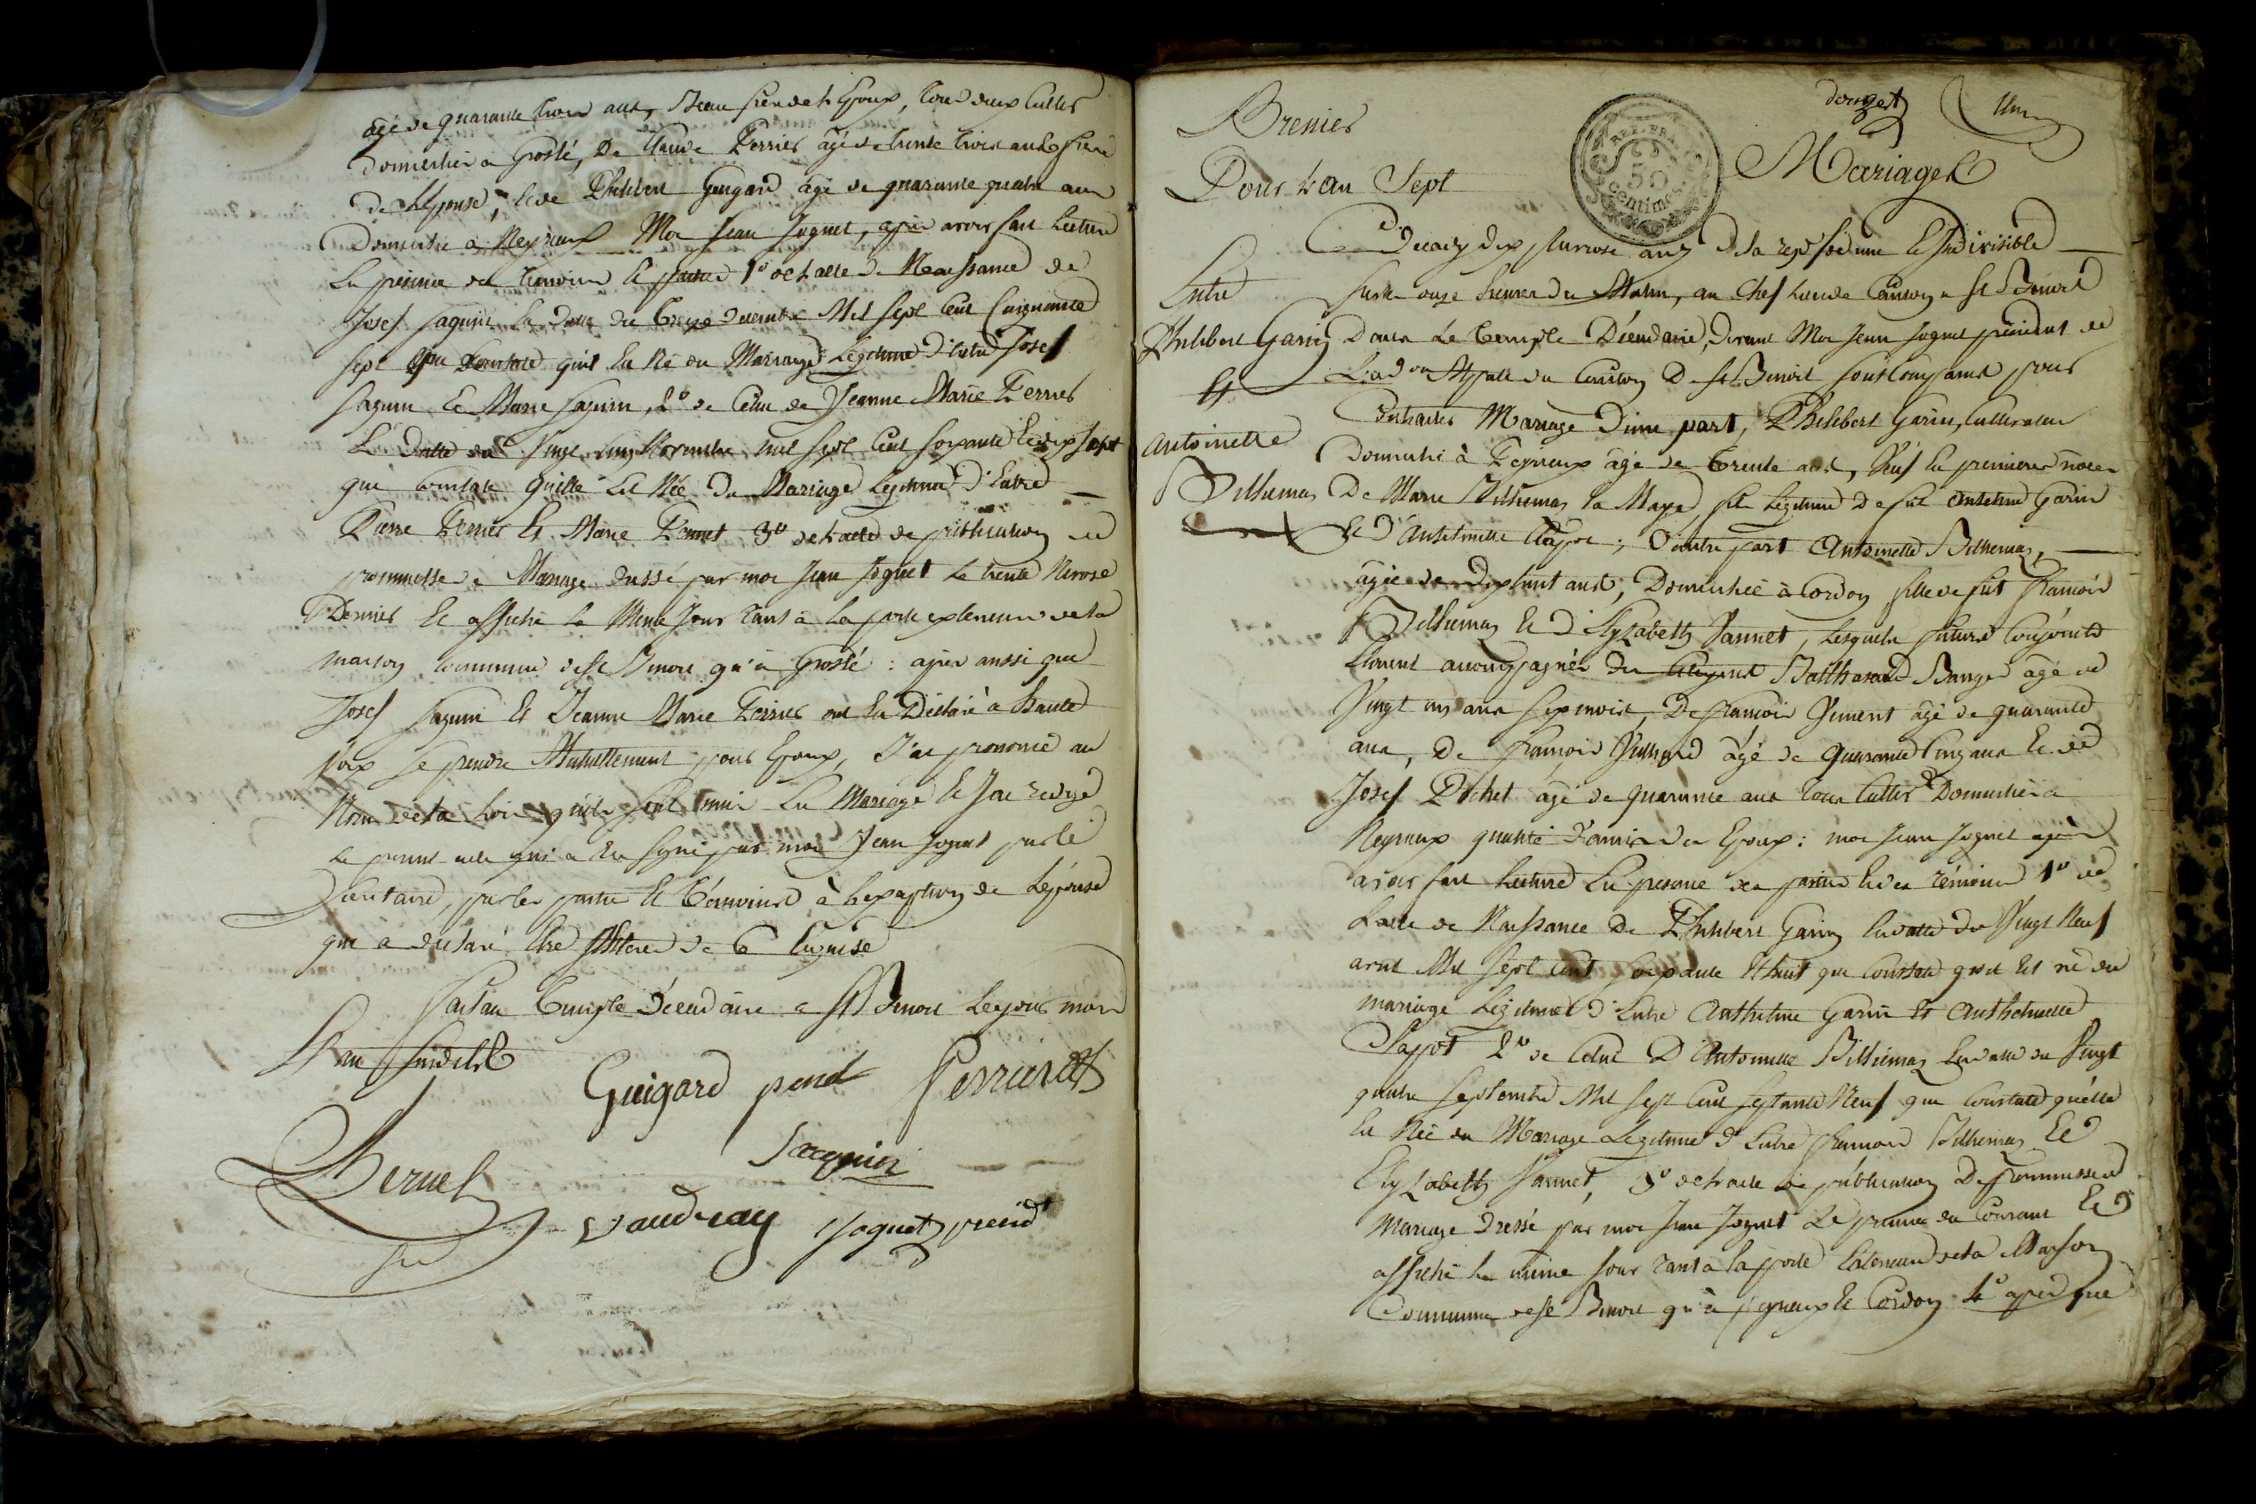 agé de quarante trois ans, Beau frere de l'Epoux, tous deux Cultrs
Domiciliés a Groslé, De Claude Perrier agé de trente trois ans frere
de L'Epouse, & de Philibert Guigard agé de quarante quatre ans
Domicilié à Peyrieux Moi Jean Joguet, après avoir fait Lecture
En présence des temoins & parties 1° de l'acte de Naissance de
Josef Jaguin La Date du treize decembre Mil sept Cent Cinquante
sept qui constate qu'il Est Né du Mariage Légitime d'Entre Josef
Jaguin & Marie Jaguin, 2° de Celui de Jeanne Marie Perrier
En Datte du Vingt cinq Novembre mil sept Cent soixante & dix sept
qui Constate qu'elle Est Née Du Mariage Légitime d'Entre
Pierre Perrier Et Marie 3° de l'acte de publication de
promesse de Mariage dressé par moi Jean Joguet Le trente Nivose
Dernier & affiché Le Même Jour tant à La porte exterieure de la
maison Commune de St Benoit qu'à Groslé : après aussi que
Josef Jaguin Et Jeanne Marie Perrier ont Eu Déclaré à Haute
Voix se prendre Mutuellement pour Epoux, J'ai prononcé au
Nom de la Loi qu'ils sont unis En Mariage & J'ai redigé
Le present acte qui a Eté signé par moi Jean Joguet par le
Secretaire, par les parties & témoins à L'exception de L'épouse
qui a declaré être illitérée de Ce Enquise
fait au temple Décadaire a St Benoit Les jour mois
& an susdits
Guigard pend Perrier
Bernet Jacquin
vaudray Joguet presidt
Premier douzet Un
Pour L'an Sept Mariages
REP. FRA.
50
Centimes
Décady dix pluviose an 7 de la repe foe une & Indivisible
Entre sur les onze heures du Matin, au Chef Lieu de Canton a St Benoit
Philibert Garin Dans Le temple Décadaire, Devant Moi Jean Joguet president de
Et L'adon Mpalle du Canton De St Benoit sont Comparus pour
Contracter Mariage D'une part, Philibert Garin, Cultivateur
Antoinette Domicilié à Peyrieux agé de trente ans, Veuf En premieres noces
Billiemas De Marie Billiemas La Maye, fils Légitime De fut Anthelme Garin
& D'Anthelmette Clapot ; D'autre part Antoinette Billiemas,
âgée de dix huit ans, Domiciliée à Cordon fille de fut Francois
Billiemas & D'Elyzabeth Vannet, Lesquels futurs Conjoints
Etoient accompagnés des Citoyens Balthazard Bange agé de
Vingt un ans six mois, De francois Vincent agé de quarante
ans, De francois agé de quarante Cinq ans & de
Josef Pochet agé de quarante ans tous Cultrs Domiciliés a
Peyrieux quatre d'amis des Epoux : moi Jean Joguet après
avoir fait Lecture En presence des parties & des témoins 1° de
L'acte de Naissance De Philibert Garin En datte du Vingt Neuf
avril Mil sept Cent soixante & huit qui Constate qu'il Est né du
mariage Légitime d'Entre Anthelme Garin Et Anthelmette
Clappot 2° de Celui D'Antoinette Billiemas En datte du Vingt
quatre septembre Mil sept Cent septante Neuf qui Constate qu'elle
Est Née du Mariage Légitime d'Entre francois Billiemas &
Elyzabeth Vannet, 3° de l'acte de publication De promesse de
Mariage dressé par moi Jean Joguet Le premier du Courant &
affiché Le même Jour tant à la porte Exterieure de la Maison
Commune de St Benoit qu'à Peyrieux & Cordon 4° après que